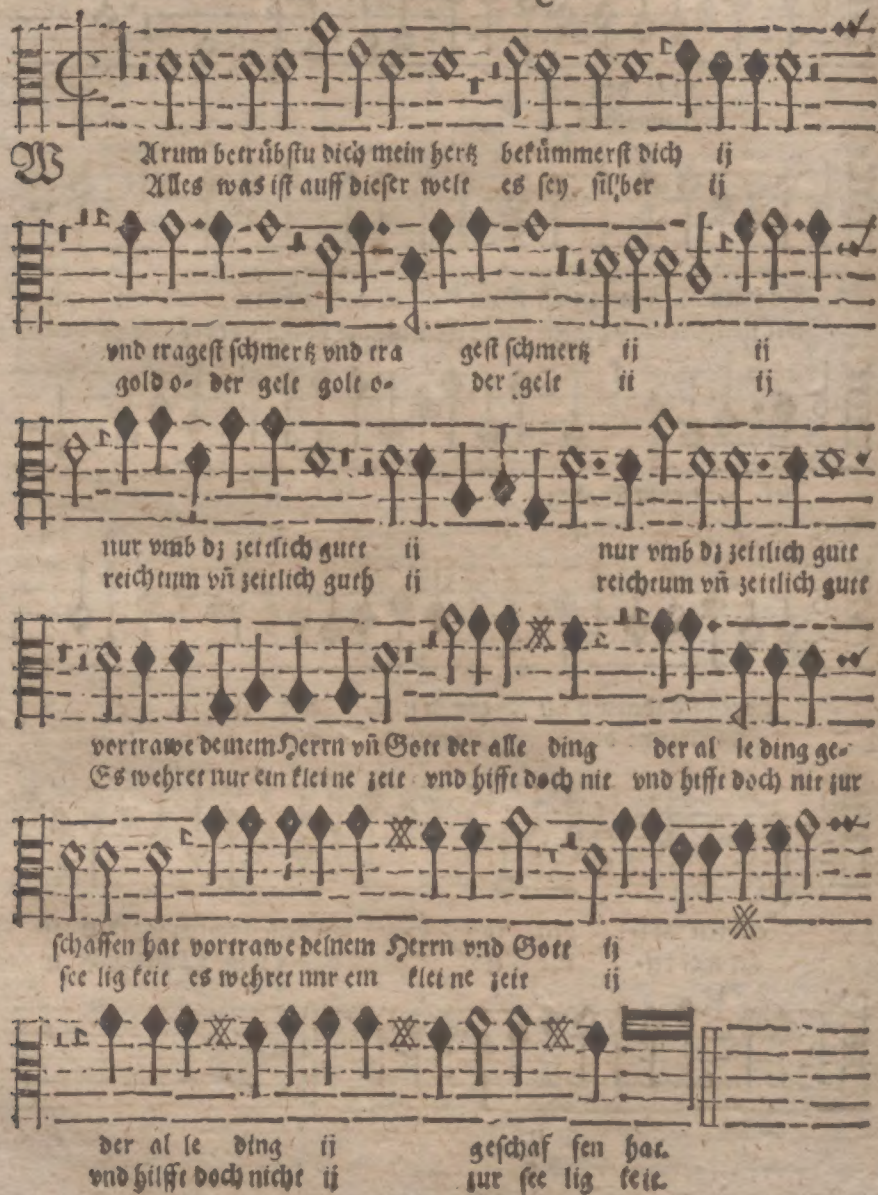 WArum betrübstu dich mein hertz bekümmerst dich ij
Alles was ist auff dieser welt es sey silber ij
vnd tragest schmertz vnd tra gest schmertz ij ij
gold o- der gelt golt o- der gelt ii ij
nur vmb dz zeitlich gutt ij nur vmb dz zeitlich gutt
reichtum vñ zeitlich guth ij reichtum vñ zeitlich gutt
vortrawe deinem Herrn vñ Gott der alle ding der al le ding ge-
Es wehret nur ein klei ne zeit vnd hifft doch nit vnd hifft doch nit zur
schaffen hat vortrawe deinem Herrn vnd Gott ij
see lig keit es wehret nur ein klei ne zeit ij
der al le ding ij geschaf fen hat.
vnd hilfft doch nicht ij zur see lig keit.